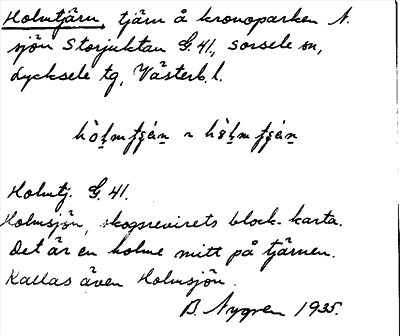 Holmtjärn, tjärn å kronoparken N.
sjön Storjuktan G.41., Sorsele sn,
Lycksele tg, Västerb. l.
Holmtj. G. 41.
Holmsjön, skogsrevirets block-karta.
Det är en holme mitt på tjärnen.
Kallas även Holmsjön.
B. Nygren 1935.